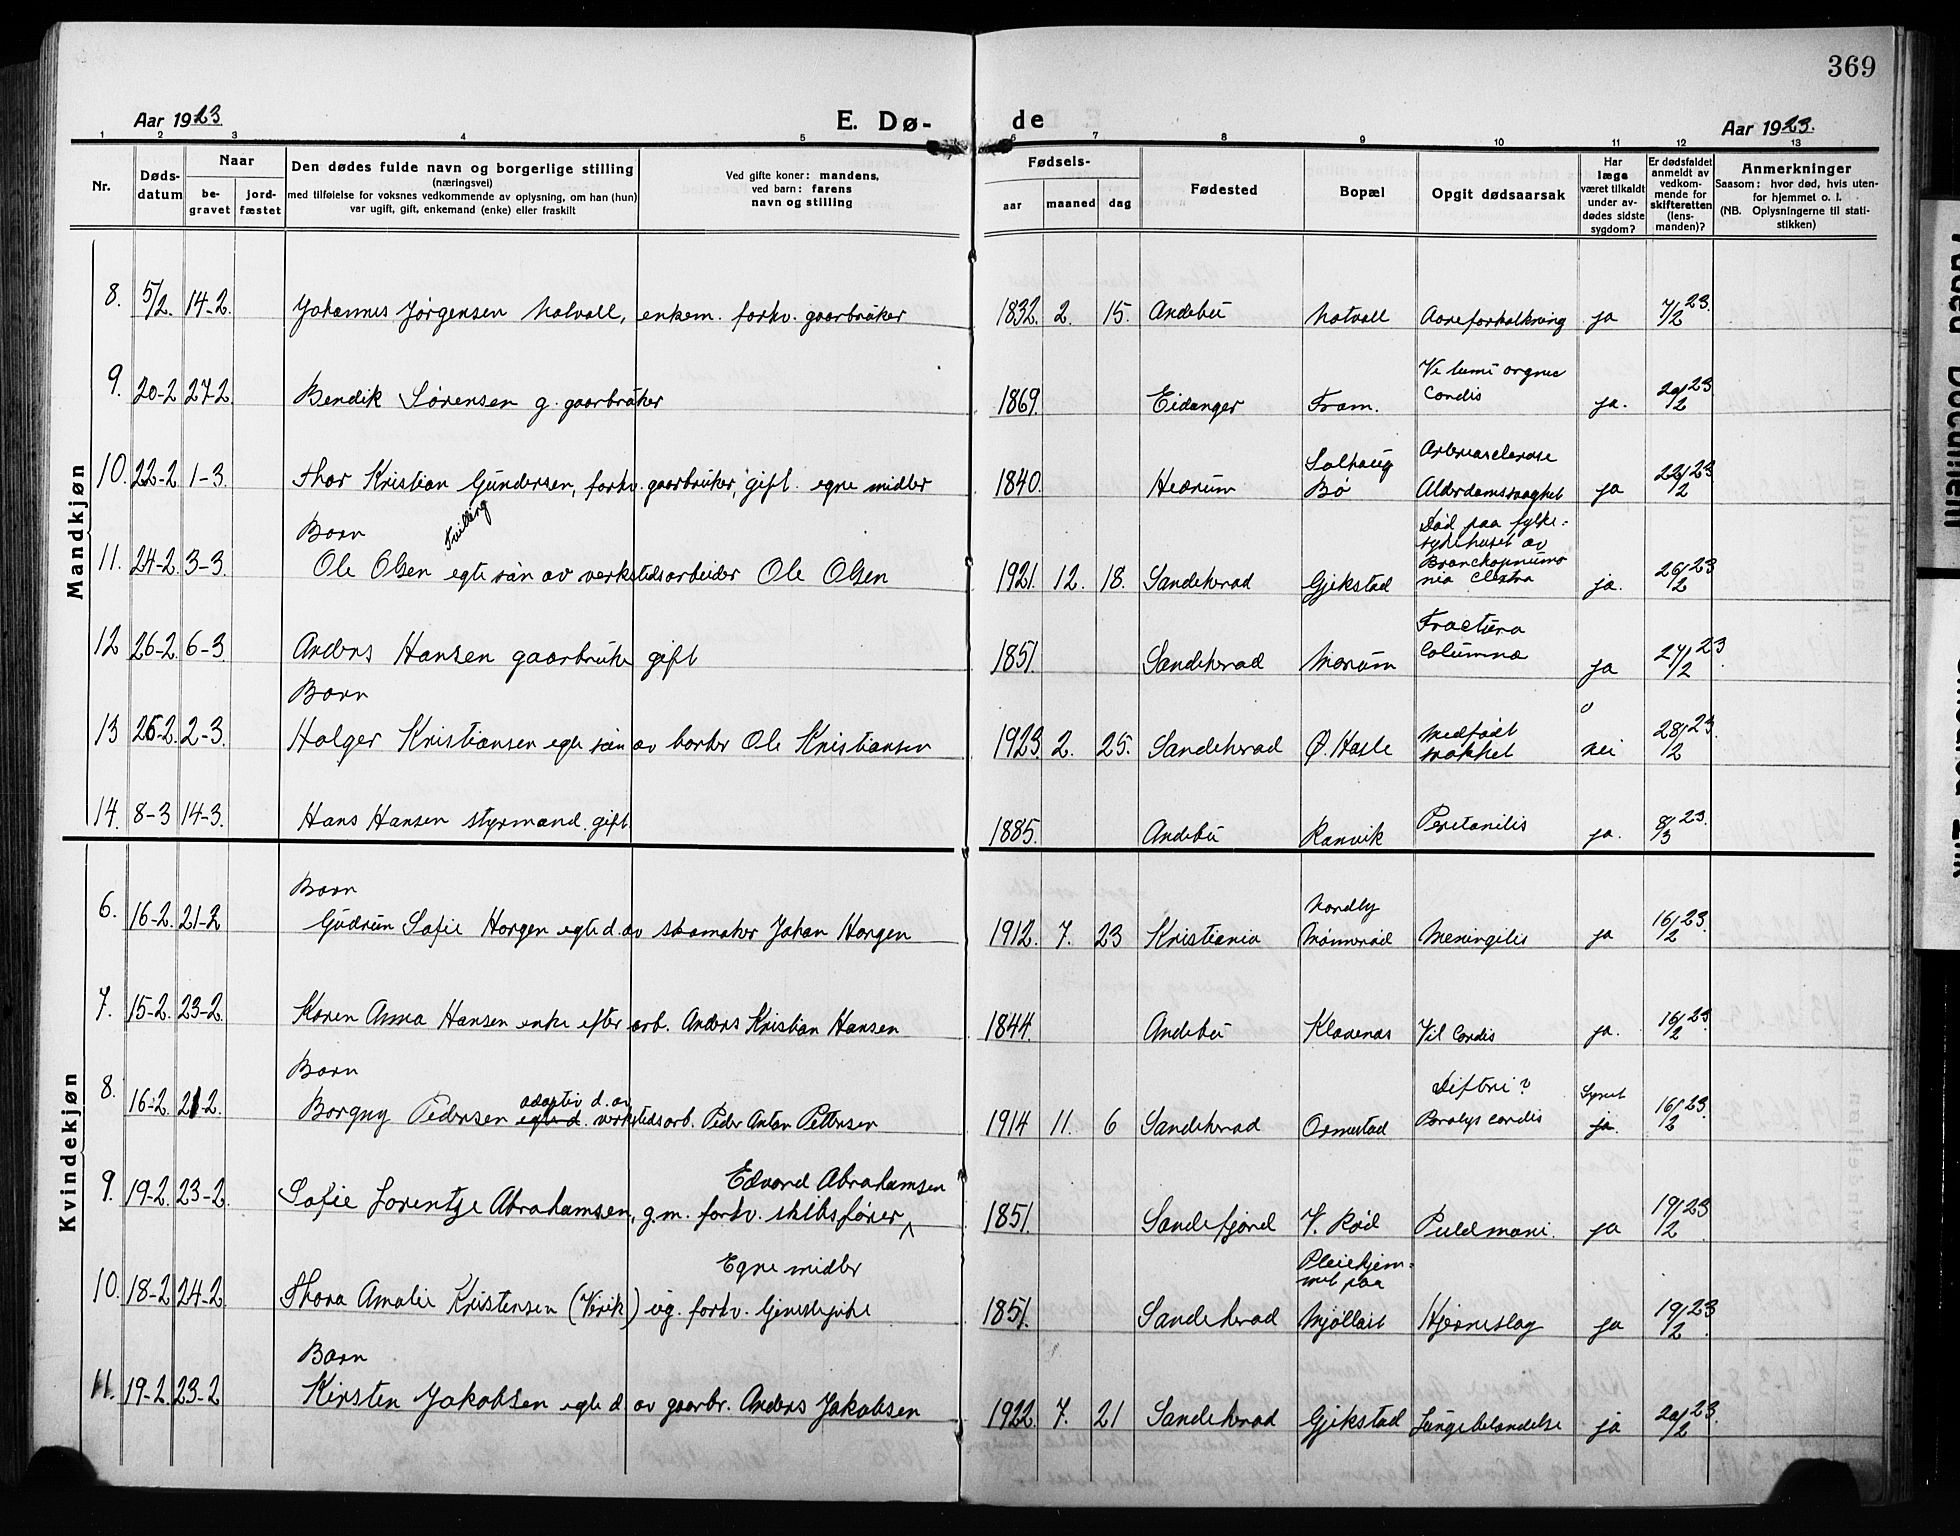 369
Aar 1923 E. Dø- de Aar 1923.
1 2 3 4 5 6 7 8 9 10 11 12 13
Nr.
Dødsdatum
Naar
begravet
jordfæstet
Den dødes fulde navn og borgerlige stilling
(næringsvei)
med tilføielse for voksnes vedkommende av oplysning, om han (hun)
var ugift, gift, enkemand (enke) eller fraskilt
Ved gifte koner: mandens,
ved barn: farens
navn og stilling
Fødsels-
aar maaned dag
Fødested
Bopæl
Opgit dødsaarsak
Har
læge
været tilkaldt
under av-
dødes sidste
sygdom?
Er dødsfaldet
anmeldt av
vedkom-
mende for
skifteretten
(lens-
manden)?
Anmerkninger
Saasom: hvor død, hvis uten-
for hjemmet o. l.
(NB. Oplysningerne til stati-
stikken)
Mandkjøn
8. 5/2. 14-2. Johannes Jørgensen Natvall, enkem. forhv. gaarbruker 1832. 2. 15. Andebu Natvall Aareforkalkning ja 7/2 23.
9. 20-2 27-2. Bendik Sørensen g. gaarbruker 1869. Eidanger Fram. Vitium orgnic
Cordis ja. 20/2 23
10. 22-2 1-3. Thor Kristian Gundersen, forhv. gaarbruker, gift. egne midler 1840. Hedrum Solhaug
Bø Arteriasclerose
Alderdomssvaghet ja 22/2 23
Barn
Tvilling
11. 24-2. 3-3. Ole Olsen egte søn av verkstedsarbeider Ole Olsen 1921. 12. 18. Sandeherad Gjekstad Død paa fylke-
sykehuset av
Bronchopneumo
nia dextra ja. 26/2 23
12 26-2. 6-3. Anders Hansen gaarbruke gift 1851. Sandeherad Marum Fractura
Columna ja 27/2 23.
Barn
13 26-2. 2-3. Holger Kristiansen egte søn av Ole Kristiansen 1923. 2. 25. Sandeherad Ø. Hasle medfødt
svakhet nei 28/2 23.
14. 8-3 14-3. Hans Hansen styrmand. gift 1885. Andebu Ranvik Peritonitis ja. 8/3 23.
Kvindekjøn
Barn
6. 16-2. 21-2 Gudrun Sofie Horgen egte d. av skomaker Johan Horgen 1912. 7. 23 Kristiania Nordby
Mønnerød Meningitis ja 16/2 23.
7. 15-2. 23-2. Karen Anna Hansen enke efter arb. Anders Kristian Hansen 1844. Andebu Klavenas Vit. Cordis ja. 16/2 23
Barn
8. 16-2. 21-2. Borgny Pedersen egte d. adoptiv d. av verkstedsarb. Peder Anton Pettersen 1914 11. 6 Sandeherad Ormestad Difteri?
Paralys cordis Synet
ja. 16/2 23.
Edvard Abrahamsen
9. 19-2. 23-2. Sofie Lorentze Abrahamsen, g.m. forhv. skibsfører 1851. Sandefjord V. Rød ja 19/2 23
Egne midler
10. 18-2 24-2. Thora Amalie Kristensen (Virik) ug. forhv. tjenestepike 1851. Sandeherad Pleiehjem-
met paa
Mjøllost Hjerneslag ja 19/2 23
Barn
11. 19-2. 23-2 Kirsten Jakobsen egte d. av gaarbr. Anders Jakobsen 1922. 7. 21 Sandeherad Gjekstad Lungebetændelse ja 20/2 23.